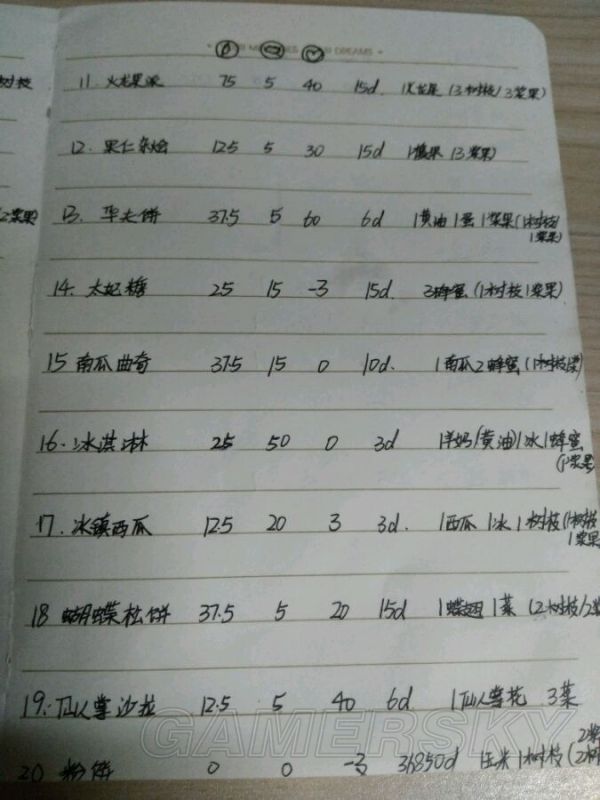 DREAMS
树枝
11. 火龙果派 75 5 40 15d 1火龙果 (3树枝/3浆果)
12. 果仁杂烩 12.5 5 30 15d 1坚果 (3浆果)
2浆果)
13. 华夫饼 37.5 5 60 6d 1黄油 1蛋 1浆果 (1树枝/
1浆果)
14. 太妃糖 25 15 -3 15d. 3蜂蜜 (1树枝1浆果)
15 南瓜曲奇 37.5 15 0 10d. 1南瓜2蜂蜜 (1树枝
16. 冰淇淋 25 50 0 3d 1羊奶(黄油)1冰1蜂蜜
(1浆果)
17. 冰镇西瓜 12.5 20 3 3d. 1西瓜 1冰 1树枝 (1树枝
1浆果)
18 蝴蝶松饼 37.5 5 20 15d 1蝶翅 1菜 (2树枝/2浆
19. 仙人掌沙拉 12.5 5 40 6d 1仙人掌花 3菜
20 粉饼 0 0 -3 36850d 玉米1树枝
GAMERSKY